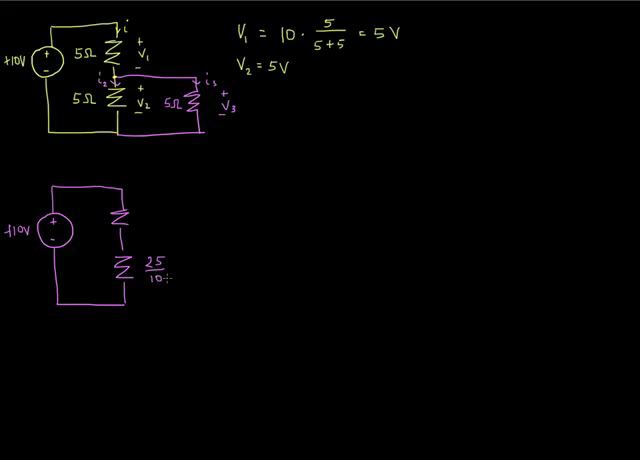 i
+10V
+
-
5Ω
+
V₁
-
i₂
i₃
5Ω
+
V₂
-
5Ω
+
V₃
-
V₁ = 10 · 5/(5+5) = 5 V
V₂ = 5V
+10V
+
-
25/10